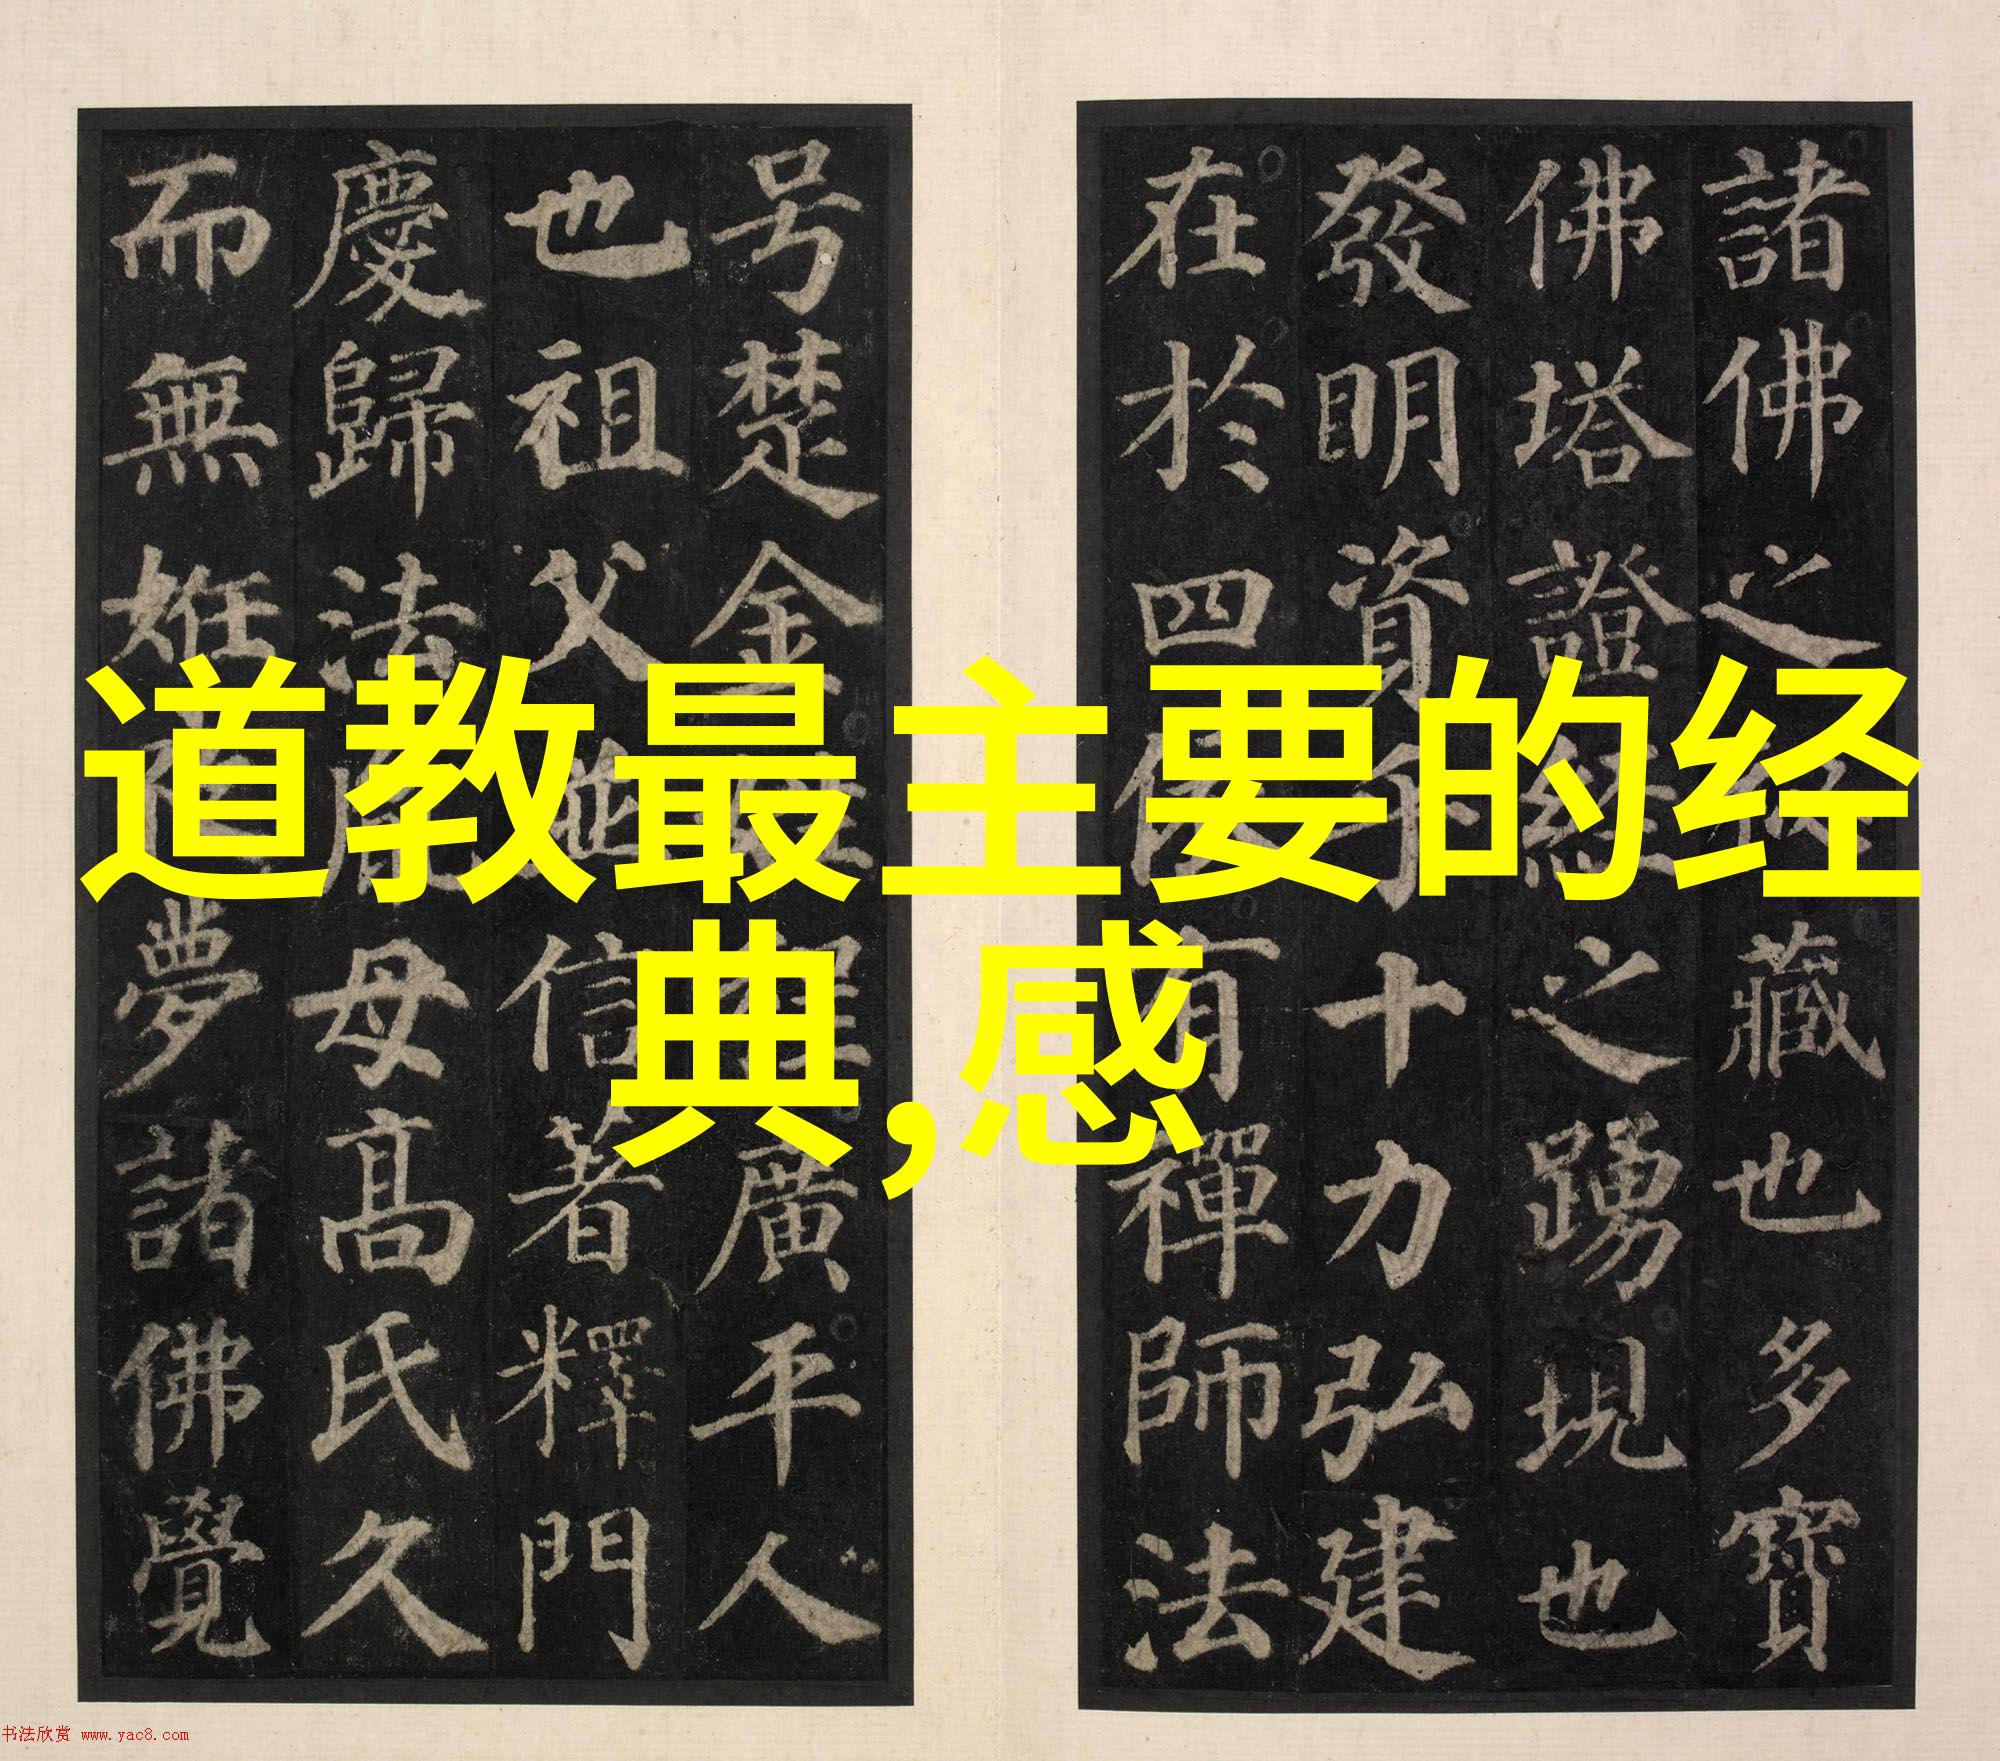 道教最主要的经
典,感
諸佛之藏也多寶
佛塔證經之踴現也
發明資乎十力弘建
在於四依有禪師法
号楚金程廣平人
也祖父並信著釋門
慶歸法胤母高氏久
而無姙夢諸佛覺
书法欣赏 www.yac8.com